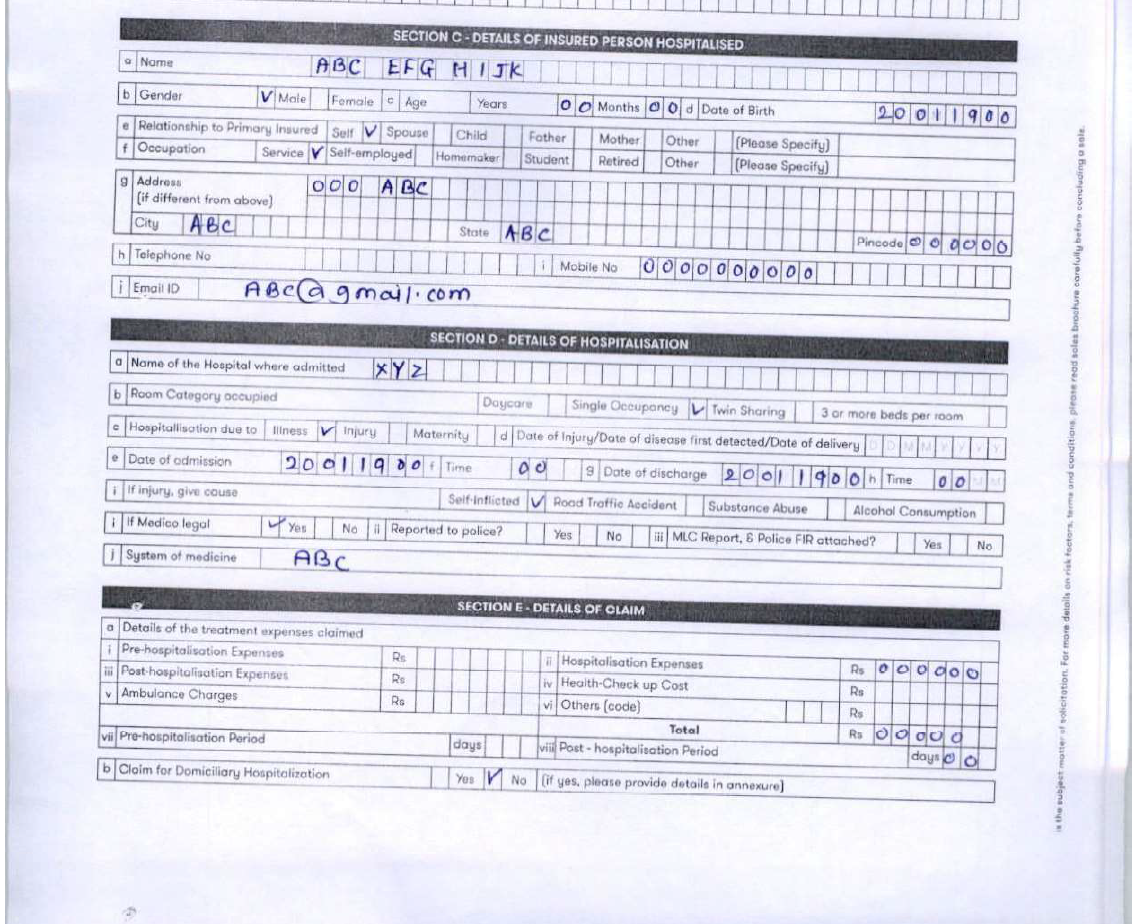 SECTION C - DETAILS OF INSURED PERSON HOSPITALISED
a Name ABC EFG HIJK
b Gender ✓ Male Female c Age Years 00 Months 00 d Date of Birth 20011900
e Relationship to Primary Insured Self ✓ Spouse Child Father Mother Other (Please Specify)
f Occupation Service ✓ Self-employed Homemaker Student Retired Other (Please Specify)
g Address 000 ABC
(if different from above)
City ABC State ABC Pincode 000000
h Telephone No i Mobile No 0000000000
j Email ID ABC@gmail.com
SECTION D - DETAILS OF HOSPITALISATION
a Name of the Hospital where admitted XYZ
b Room Category occupied Daycare Single Occupancy ✓ Twin Sharing 3 or more beds per room
c Hospitallisation due to Illness ✓ Injury Maternity d Date of Injury/Date of disease first detected/Date of delivery D D M M Y Y Y Y
e Date of admission 20011900 f Time 00 g Date of discharge 20011900 h Time 00 M M
i If injury, give cause Self-Inflicted ✓ Road Traffic Accident Substance Abuse Alcohol Consumption
i If Medico legal ✓ Yes No ii Reported to police? Yes No iii MLC Report, & Police FIR attached? Yes No
j System of medicine ABC
SECTION E - DETAILS OF CLAIM
a Details of the treatment expenses claimed
i Pre-hospitalisation Expenses Rs ii Hospitalisation Expenses Rs 000000
iii Post-hospitalisation Expenses Rs iv Health-Check up Cost Rs
v Ambulance Charges Rs vi Others (code) Rs
Total Rs 00000
vii Pre-hospitalisation Period days viii Post - hospitalisation Period days 00
b Claim for Domiciliary Hospitalization Yes ✓ No (if yes, please provide details in annexure)
is the subject matter of solicitation. For more details on risk factors, terms and conditions, please read sales brochure carefully before concluding a sale.